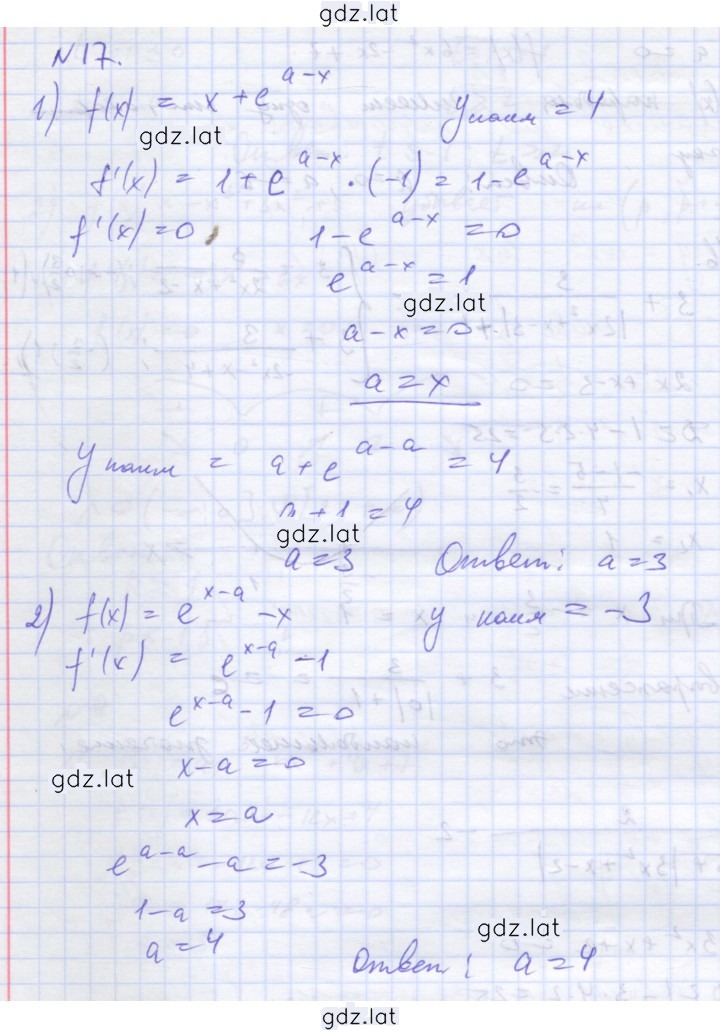 gdz.lat
N17.
1) f(x) = x + e^{a-x} y наим = 4
gdz.lat
f'(x) = 1 + e^{a-x} · (-1) = 1 - e^{a-x}
f'(x) = 0, 1 - e^{a-x} = 0
e^{a-x} = 1
gdz.lat
a - x = 0
a = x
y наим = a + e^{a-a} = 4
a + 1 = 4
gdz.lat
a = 3 Ответ: a = 3
2) f(x) = e^{x-a} - x y наим = -3
f'(x) = e^{x-a} - 1
e^{x-a} - 1 = 0
x - a = 0
gdz.lat
x = a
e^{a-a} - a = -3
1 - a = 3
a = 4
gdz.lat
Ответ: a = 4
gdz.lat